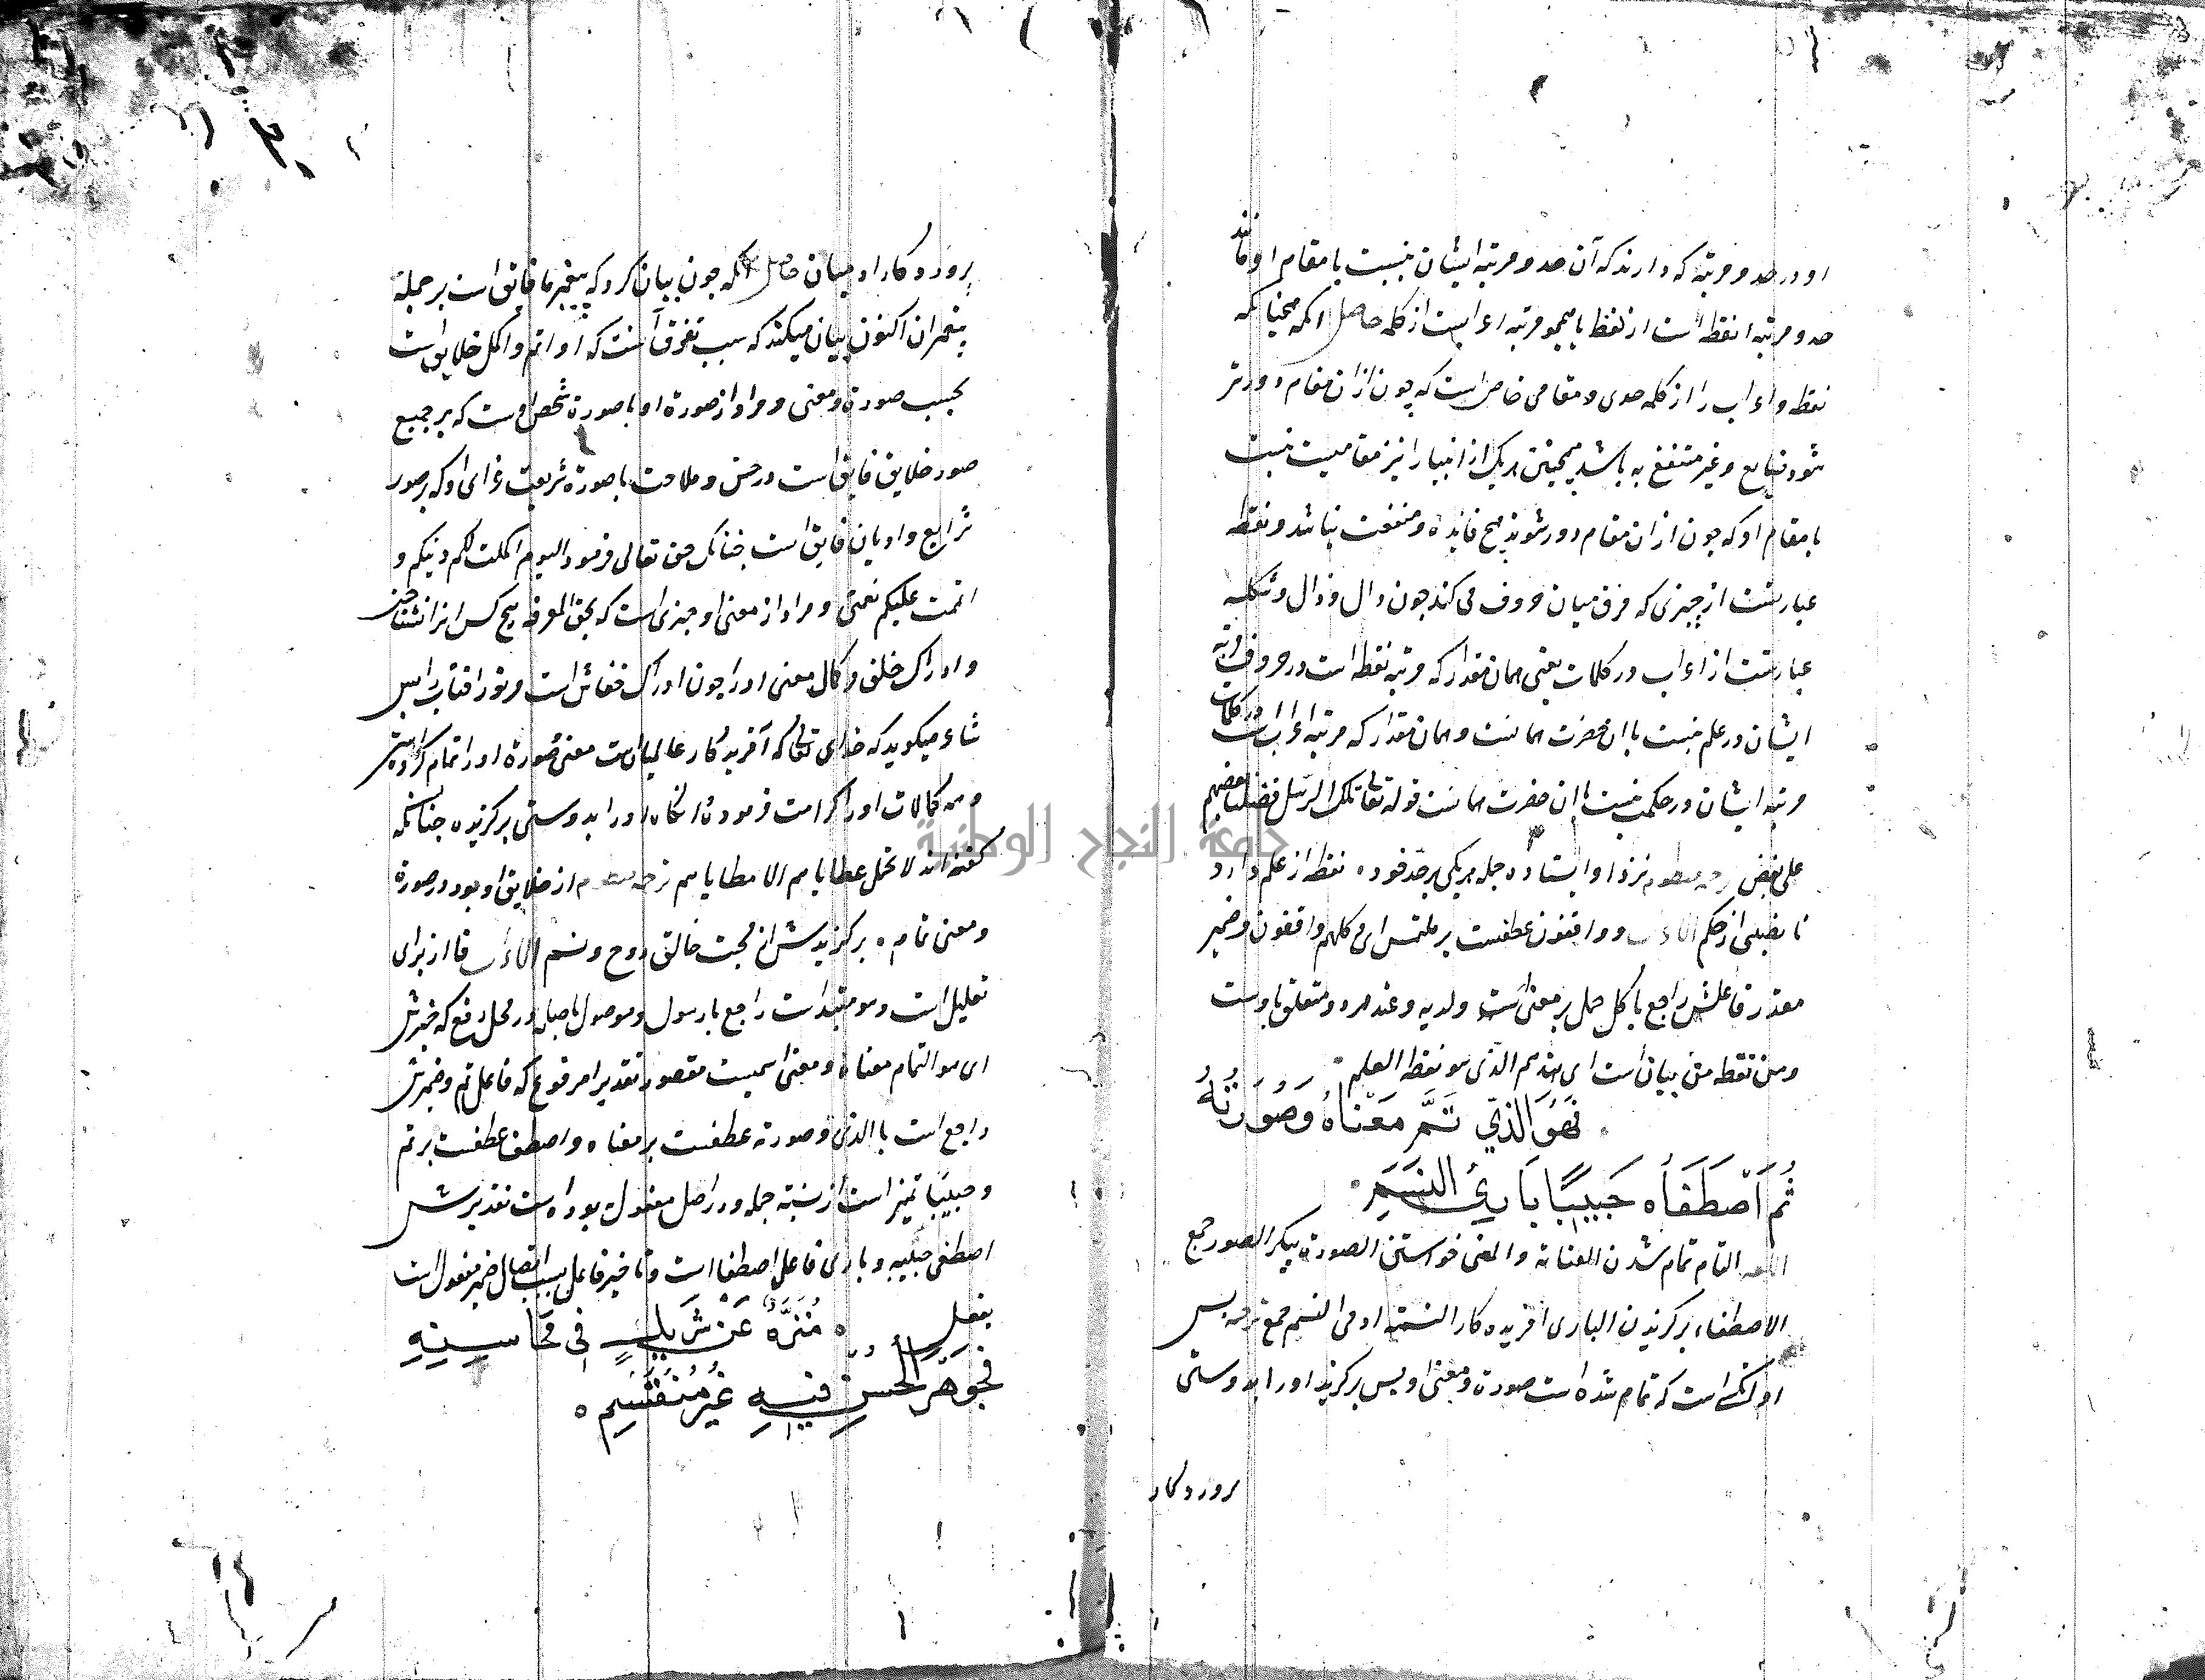 او در حد و مرتبه که دارند که آن حد و مرتبه ایشان بنسبت با مقام او مانند
حد و مرتبه نقطه است از لفظ یا همچو مرتبه اعرابست از کلمه حاصل انکه همچنانکه
نقطه و اعراب را از کلمه حدی و مقامی خاص است که چون ازان مقام دورتر
شود ضایع و غیر منتفع به باشد همچنین هریک از انبیا را نیز مقامیست بنسبت
با مقام او که چون ازان مقام دور شوند هیچ فایده و منفعت نباشد و نقطه
عبارتست از چیزی که فرق میان حروف می کند چون دال و ذال و شکله
عبارتست از اعراب در کلمات یعنی همان مقدار که مرتبه نقطه است در حروف مرتبه
ایشان در علم بنسبت با ان حضرت همانست و همان مقدار که مرتبه اعراب است در کلمات
مرتبه ایشان در حکمت بنسبت با ان حضرت همانست قوله تعالی تلک الرسل فضلنا بعضهم
علی بعض نزد او ایستاده جمله هریکی بر حد خود ه نقطه از علم دارد
یا نصیبی از حکم و واقفون عطفست بر ملتمس ای کلهم واقفون و ضمیر
مقدر فاعلش راجع با کل حمل بر معنی است ولدیه و عند هر دو متعلق باوست
ومن نقطه من بیان است ای عند حدهم الذی هو نقطة العلم
فَهُوَ الَّذِي تَمَّ مَعْنَاهُ وَصُورَتُهُ
ثُمَّ اصْطَفَاهُ حَبِيبًا بَارِئُ النَّسَمِ
التمام تمام شدن المعناة والمعنی خواستن الصورة پیکر الصور جمع
الاصطفاء برکزیدن الباری افریدکار النسمة ادمی النسم جمع ترجمه پس
او انکس است که تمام شده است صورة و معنی او پس برکزید او را بدوستی
پروردکار
پروردکار ادمیان حاصل انکه چون بیان کرد که پیغمبر ما فایق است بر جمله
پیغمبران اکنون بیان میکند که سبب تفوق آنست که او اتم و اکمل خلایق است
بحسب صورة و معنی و مراد از صورة او یا صورة شخص اوست که بر جمیع
صور خلایق فایق است در حسن و ملاحت یا صورة شریعت غرای او که بر صور
شرایع و ادیان فایق است چنانک حق تعالی فرمود الیوم اکملت لکم دینکم و
اتممت علیکم نعمتی و مراد از معنی او چیزی است که بحق المعرفه هیچ کس انرا نشناخت
و ادراک خلق و کمال معنی او را چون ادراک خفاش است و نور افتاب را پس
شاعر میکوید که خدای تعالی که آفریدکار عالمیان است معنی و صورة او را تمام کردانید
و همه کمالات او را کرامت فرموده انکاه او را بدوستی برکزیده چنانکه
کفته اند لا تحمل عطایاهم الا مطایاهم ترجمه منظوم از خلایق او بود در صورة
و معنی تمام ه برکزیدش از محبت خالق روح و نسم الاعراب فا از برای
تعلیل است و هو مبتداست راجع با رسول و موصول با صله در محل رفع که خبرش
ای هو التمام معناه و معنی اسمیست مقصور تقدیرا مرفوع که فاعل تم و ضمیرش
راجع است با الذی و صورته عطفست بر معناه و اصطفی عطفست بر تم
و حبیبا تمیز است از نسبة جمله و در اصل مفعول به بوده است تقدیرش
اصطفی حبیبه و باری فاعل اصطفا است و تاخیر فاعل بسبب اتصال ضمیر مفعول است
بفعل ه مُنَزَّهٌ عَنْ شَرِيكٍ فِي مَحَاسِنِهِ
فَجَوْهَرُ الْحُسْنِ فِيهِ غَيْرُ مُنْقَسِمِ ه
جامعة النجاح الوطنية